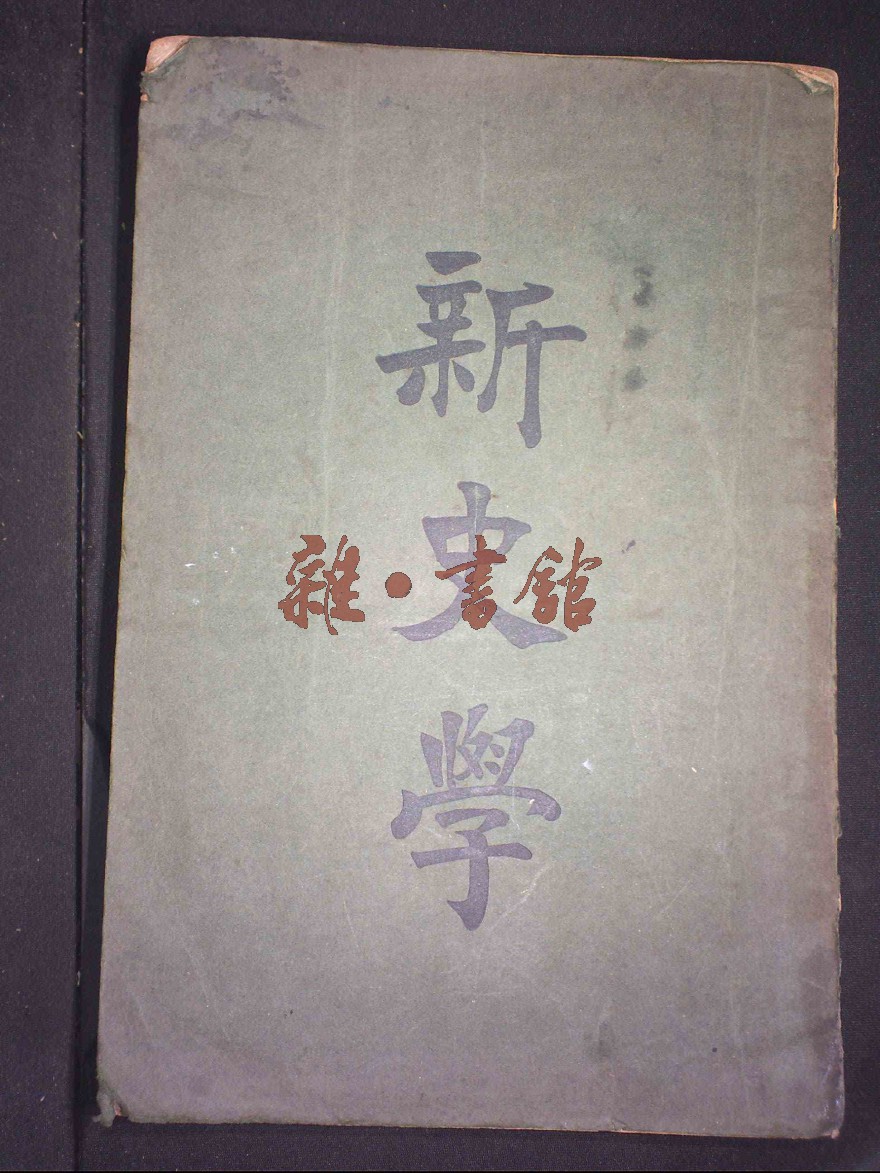 新史學
雜·書館